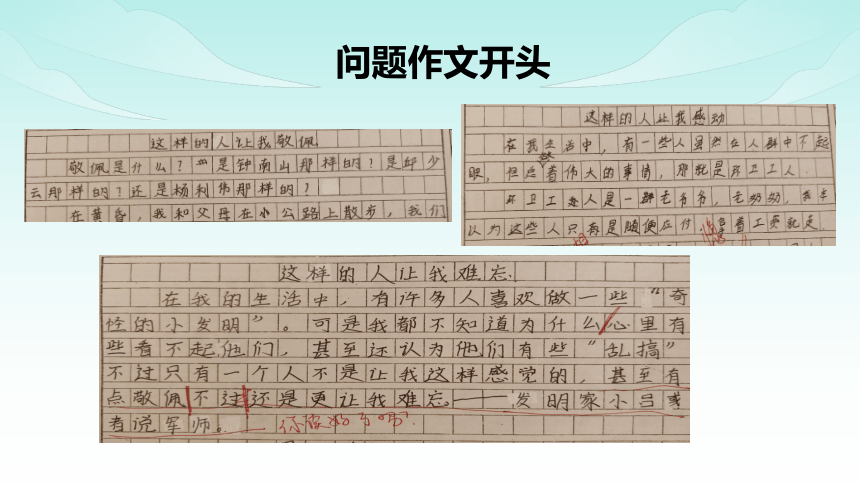 问题作文开头
这样的人让我敬佩
敬佩是什么？是钟南山那样的？是邱少
云那样的？还是杨利伟那样的？
在黄昏，我和父母在小公路上散步，我们
这样的人让我感动
在我生活中，有一些人虽然在人群中不起
眼，但做着伟大的事情，那就是环卫工人.
环卫工人是一群老爷爷，老奶奶，
以为这些人只有是随便应付，拿着工资就走.
这样的人让我难忘.
在我的生活中，有许多人喜欢做一些“奇
怪的小发明”。可是我都不知道为什么心里有
些看不起他们，甚至还认为他们有些“乱搞”
不过只有一个人不是让我这样感觉的，甚至有
点敬佩不过还是更让我难忘。——发明家小吕
者说军师。